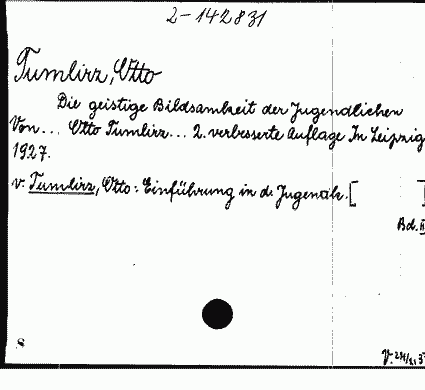 2-142831
Tumlirz, Otto
Die geistige Bildsamkeit der Jugendlichen
Von... Otto Tumlirz... 2. verbesserte Auflage In Leipzig
1927.
v. Tumlirz, Otto: Einführung in d. Jugendk. [ ]
Bd. II
8